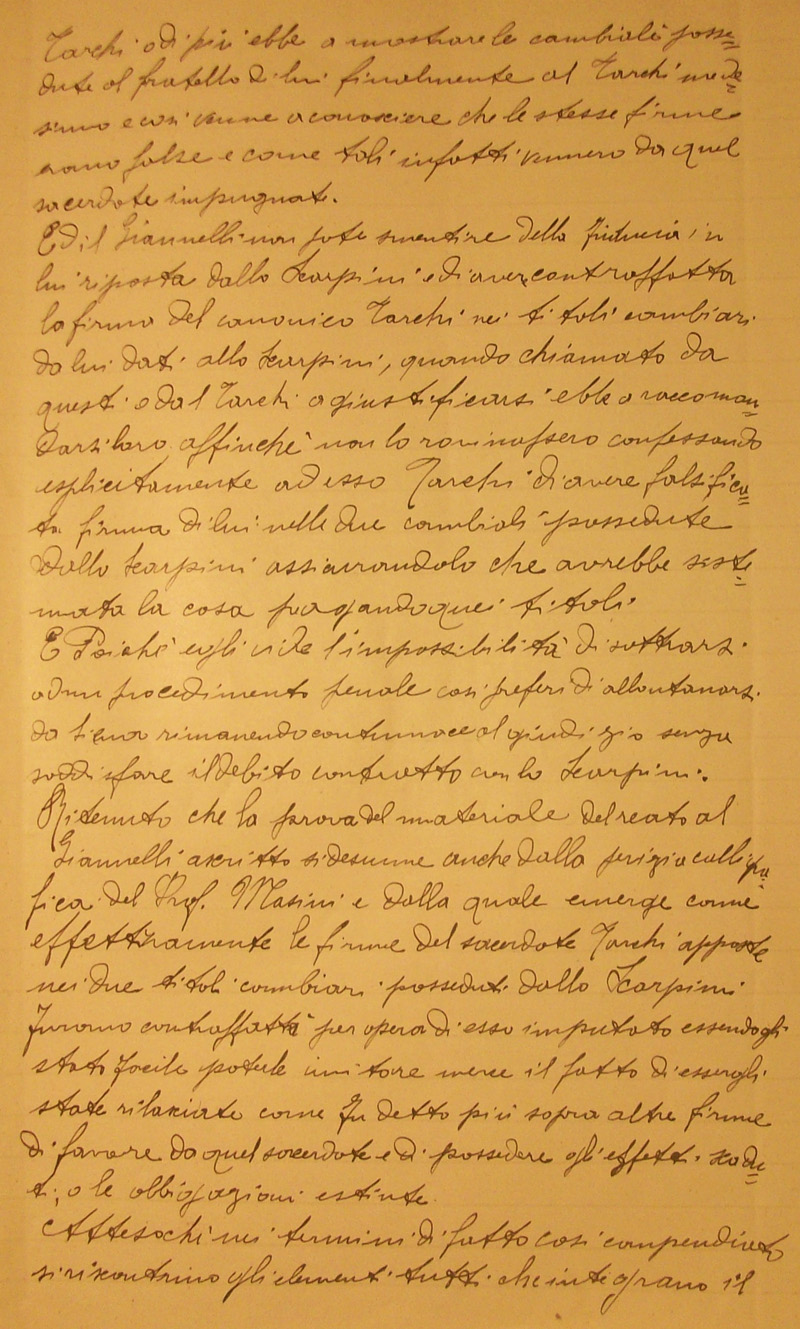 Tarchi o di più ebbe a mostrare le cambiali posse=
dute al fratello di lui finalmente al Tarchi mede=
simo e così venne a conoscere che le stesse firme
erano false e come tali infatti vennero da quel
sacerdote impugnate.
Ed il Giannelli non potè smentire della fiducia in
lui riposta dallo Scarpini e di aver contraffatta
la firma del canonico Tarchi nei titoli cambiari
da lui dati allo Scarpini, quando chiamato da
questi e dal Tarchi a giustificarsi ebbe a raccoman=
darsi loro affinchè non lo rovinassero confessando
esplicitamente ad esso Tarchi di avere falsifica=
ta firma di lui nelle due cambiali possedute
dallo Scarpini assicurandolo che avrebbe siste=
mata la cosa pagando quei titoli.
E Poichè egli vide l'impossibilità di sottrarsi
ad un procedimento penale così preferì di allontanarsi
da Siena rimanendo contumace al giudizio senza
soddisfare il debito contratto con lo Scarpini.
Ritenuto che la prova del materiale del reato al
Giannelli ascritto si desume anche dalla perizia calligra=
fica del Prof. Masini e dalla quale emerge come
effettivamente le firme del sacerdote Tarchi apposte
nei due titoli cambiari posseduti dallo Scarpini
furono contraffatti per opera di esso imputato essendogli
stato facile poterle imitare mercè il fatto di essergli
state rilasciate come fu detto più sopra altre firme
di favore da quel sacerdote e di possedere gli effetti scadu=
ti, o le obbligazioni estinte
Attesochè nei termini di fatto così compendiato
si riscontrino gli elementi tutti che integrano il